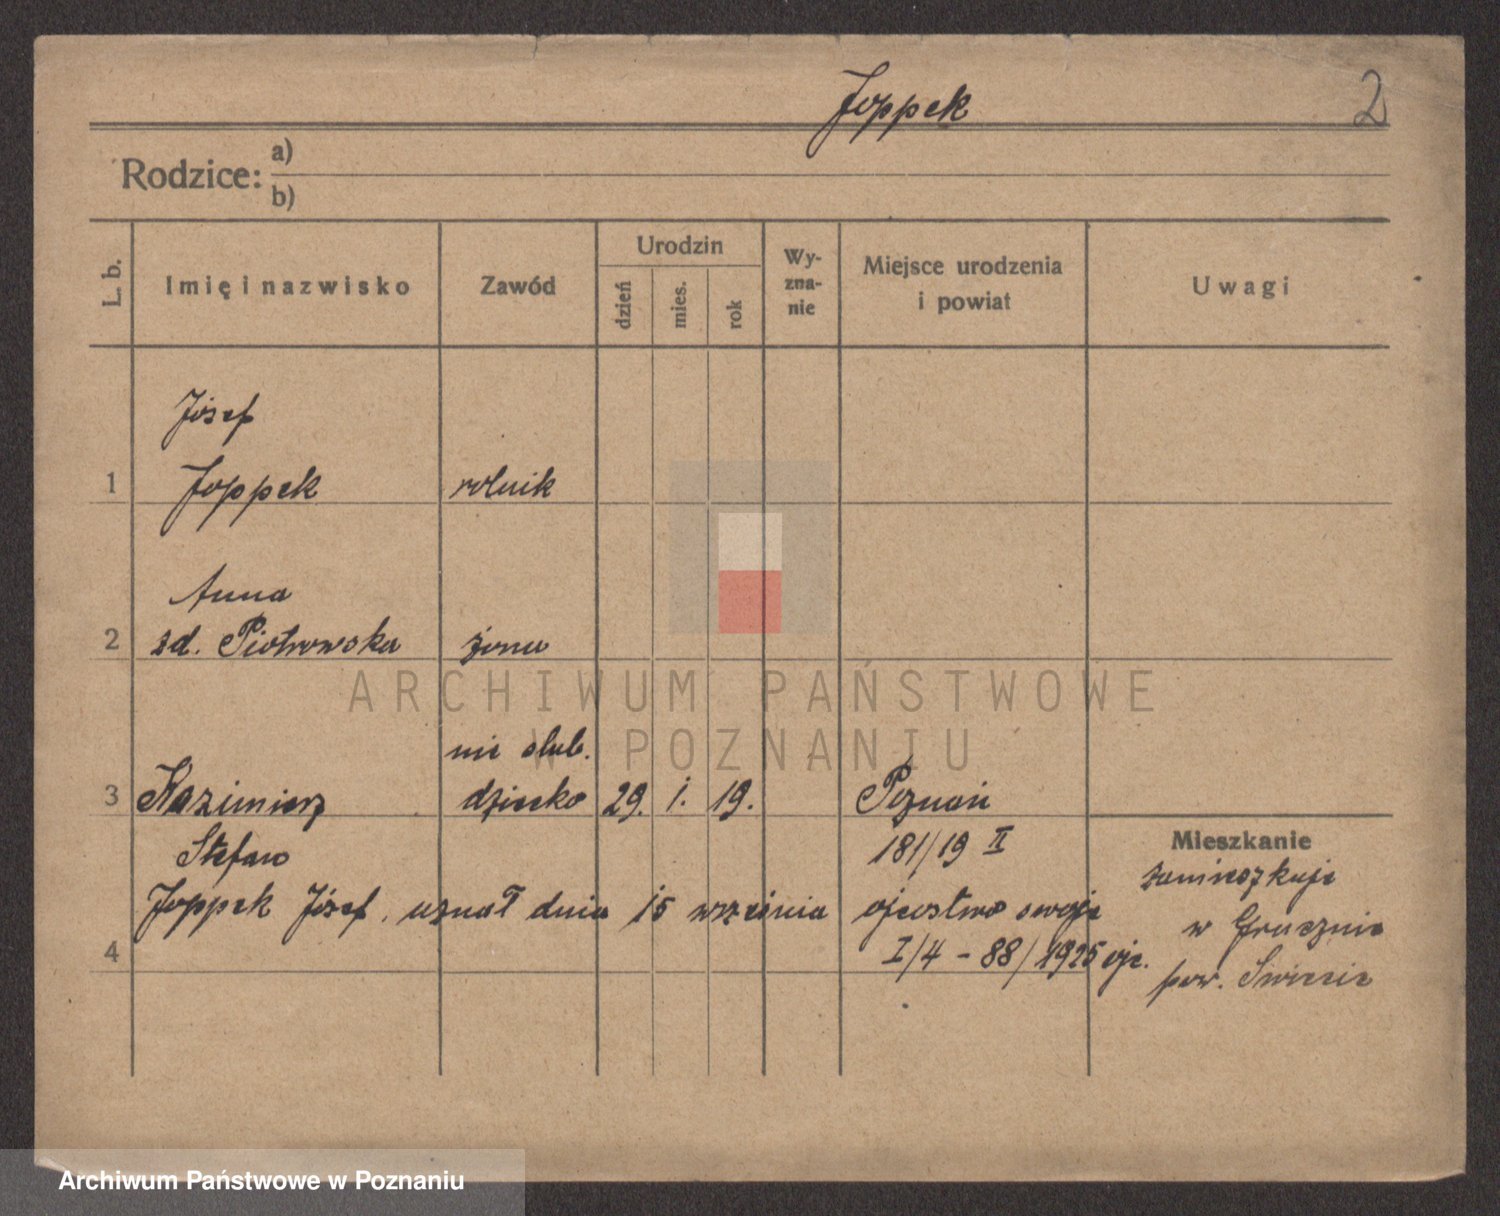 Joppek 2
Rodzice: a)
b)
L. b. Imię i nazwisko Zawód Urodzin dzień mies. rok Wy-zna-nie Miejsce urodzenia i powiat Uwagi
Józef
1 Joppek rolnik
Anna
2 zd. Piotrowska żona
ARCHIWUM PAŃSTWOWE
W POZNANIU
nie ślub.
3 Kazimierz dziecko 29. 1. 19. Poznań
Stefan 181/19 II Mieszkanie
zamieszkuje
Joppek Józef, uznał dnia 15 września ojcostwo swoje w Grucznie
4 I/4 - 88/1925 ojc. pow. Świecie
Archiwum Państwowe w Poznaniu